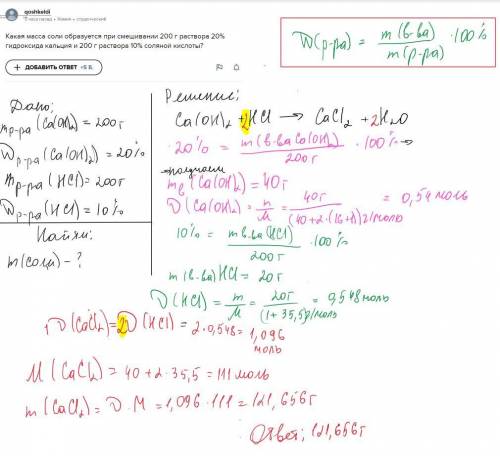 qoshkeldi
5 часов назад • Химия • студенческий
Какая масса соли образуется при смешивании 200 г раствора 20%
гидроксида кальция и 200 г раствора 10% соляной кислоты?
+ ДОБАВИТЬ ОТВЕТ +5 Б.
W(р-ра) = m(в-ва) / m(р-ра) · 100%
Дано:
m р-ра (Ca(OH)₂) = 200г
W р-ра (Ca(OH)₂) = 20%
m р-ра (HCl) = 200г
W р-ра (HCl) = 10%
Найти:
m(соли) - ?
Решение:
Ca(OH)₂ + 2HCl → CaCl₂ + 2H₂O
20% = m(в-ва Ca(OH)₂) / 200г · 100% →
получаем
(Ca(OH)₂) = 40г
ν(Ca(OH)₂) = m/M = 40г / (40+2·(16+1))г/моль = 0,54 моль
10% = m в-ва (HCl) / 200г · 100%
m(в-ва) HCl = 20г
ν(HCl) = m/M = 20г / (1+35,5)г/моль = 0,548 моль
1ν(CaCl₂) = 2ν(HCl) = 2·0,548 = 1,096
моль
M(CaCl₂) = 40 + 2·35,5 = 111 моль
m(CaCl₂) = ν·M = 1,096·111 = 121,656г
Ответ: 121,656г